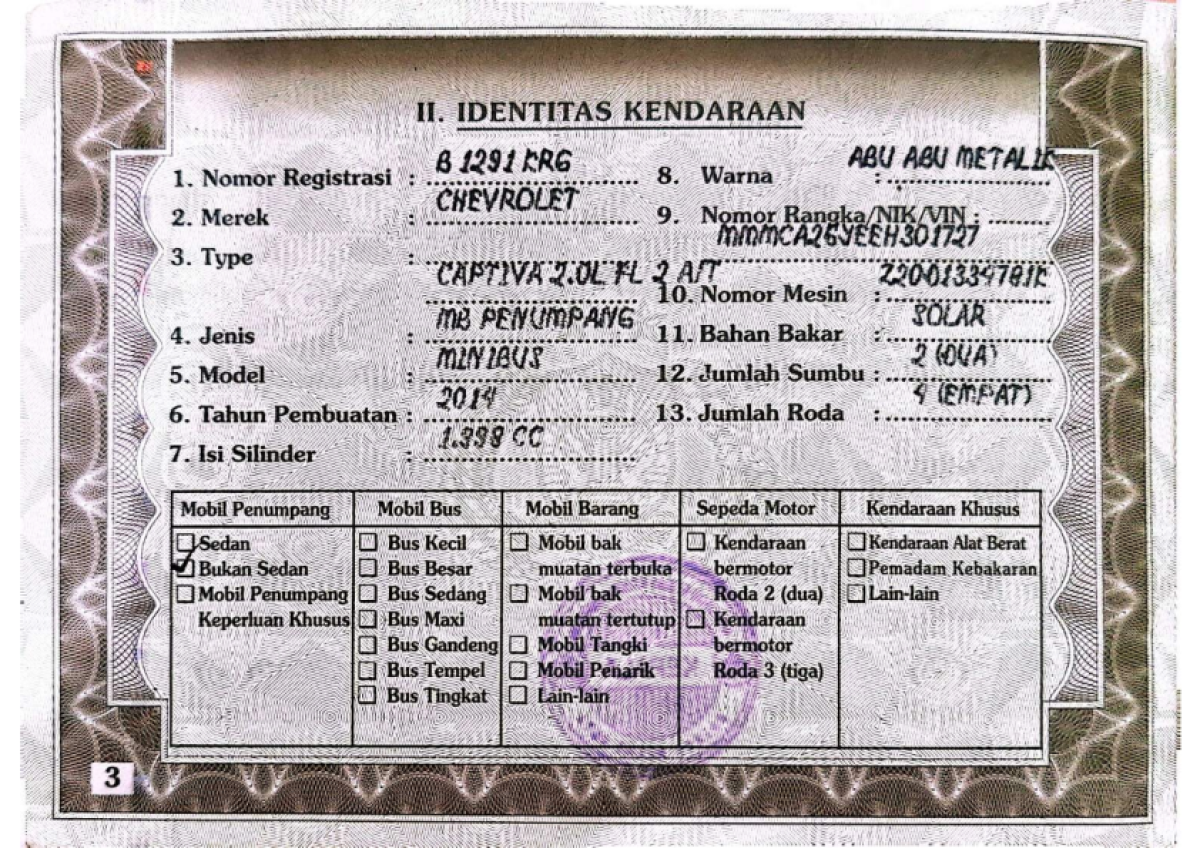 II. IDENTITAS KENDARAAN
1. Nomor Registrasi : B 1291 KRG
2. Merek : CHEVROLET
3. Type : CAPTIVA 2.0L FL 2 A/T
4. Jenis : MB PENUMPANG
5. Model : MINIBUS
6. Tahun Pembuatan : 2014
7. Isi Silinder : 1.998 CC
8. Warna : ABU ABU METALIK
9. Nomor Rangka/NIK/VIN :
MMMCA26YEEH301727
10. Nomor Mesin : Z20D1334781K
11. Bahan Bakar : SOLAR
12. Jumlah Sumbu : 2 (DUA)
13. Jumlah Roda : 4 (EMPAT)
Mobil Penumpang
Sedan
Bukan Sedan
Mobil Penumpang
Keperluan Khusus
Mobil Bus
Bus Kecil
Bus Besar
Bus Sedang
Bus Maxi
Bus Gandeng
Bus Tempel
Bus Tingkat
Mobil Barang
Mobil bak
muatan terbuka
Mobil bak
muatan tertutup
Mobil Tangki
Mobil Penarik
Lain-lain
Sepeda Motor
Kendaraan
bermotor
Roda 2 (dua)
Kendaraan
bermotor
Roda 3 (tiga)
Kendaraan Khusus
Kendaraan Alat Berat
Pemadam Kebakaran
Lain-lain
3